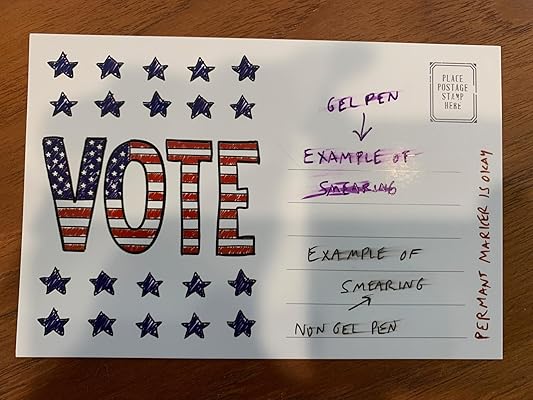 VOTE
PLACE
POSTAGE
STAMP
HERE
GEL PEN
EXAMPLE OF
SMEARING
EXAMPLE OF
SMEARING
NON GEL PEN
PERMANT MARKER IS OKAY